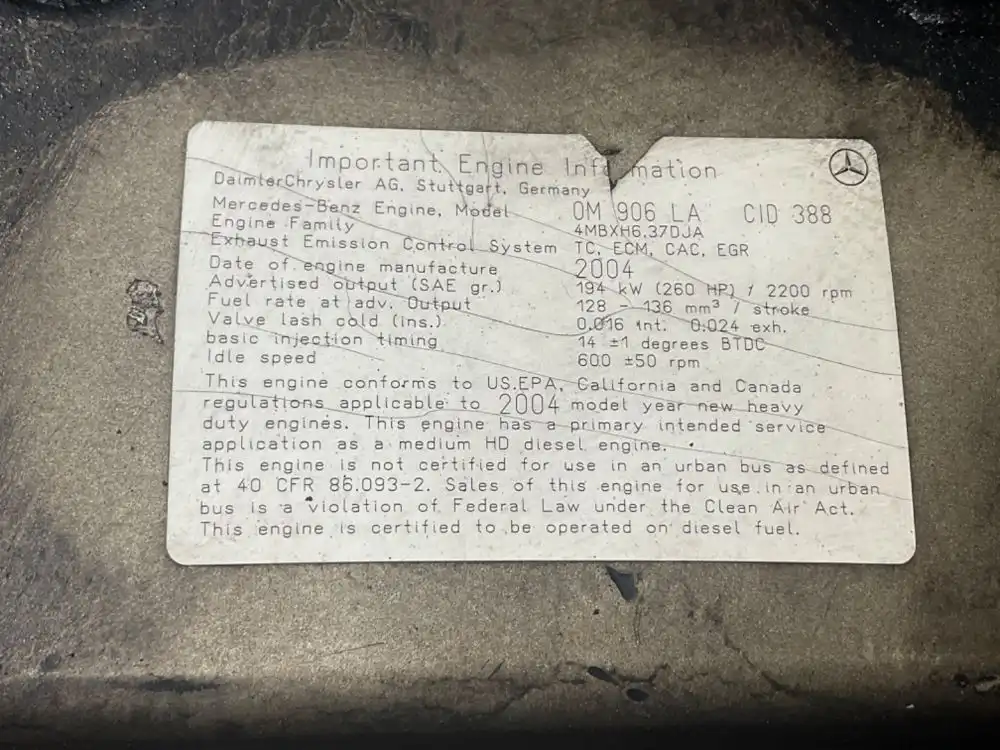 Important Engine Inf mation
DaimlerChrysler AG, Stuttgart, Germany
Mercedes-Benz Engine, Model OM 906 LA CID 388
Engine Family 4MBXH6.37DJA
Exhaust Emission Control System TC, ECM, CAC, EGR
Date of engine manufacture 2004
Advertised output (SAE gr.) 194 kW (260 HP) / 2200 rpm
Fuel rate at adv. Output 128 - 136 mm³ / stroke
Valve lash cold (ins.) 0.016 int. 0.024 exh.
basic injection timing 14 ±1 degrees BTDC
Idle speed 600 ±50 rpm
This engine conforms to US.EPA, California and Canada
regulations applicable to 2004 model year new heavy
duty engines. This engine has a primary intended service
application as a medium HD diesel engine.
This engine is not certified for use in an urban bus as defined
at 40 CFR 86.093-2. Sales of this engine for use in an urban
bus is a violation of Federal Law under the Clean Air Act.
This engine is certified to be operated on diesel fuel.